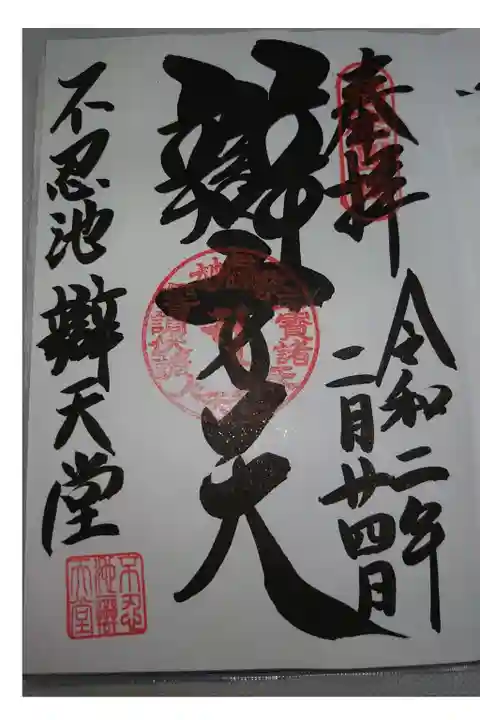 奉拝
令和二年
二月廿四日
辯才天
不忍池辯天堂
不忍
池辯
天堂